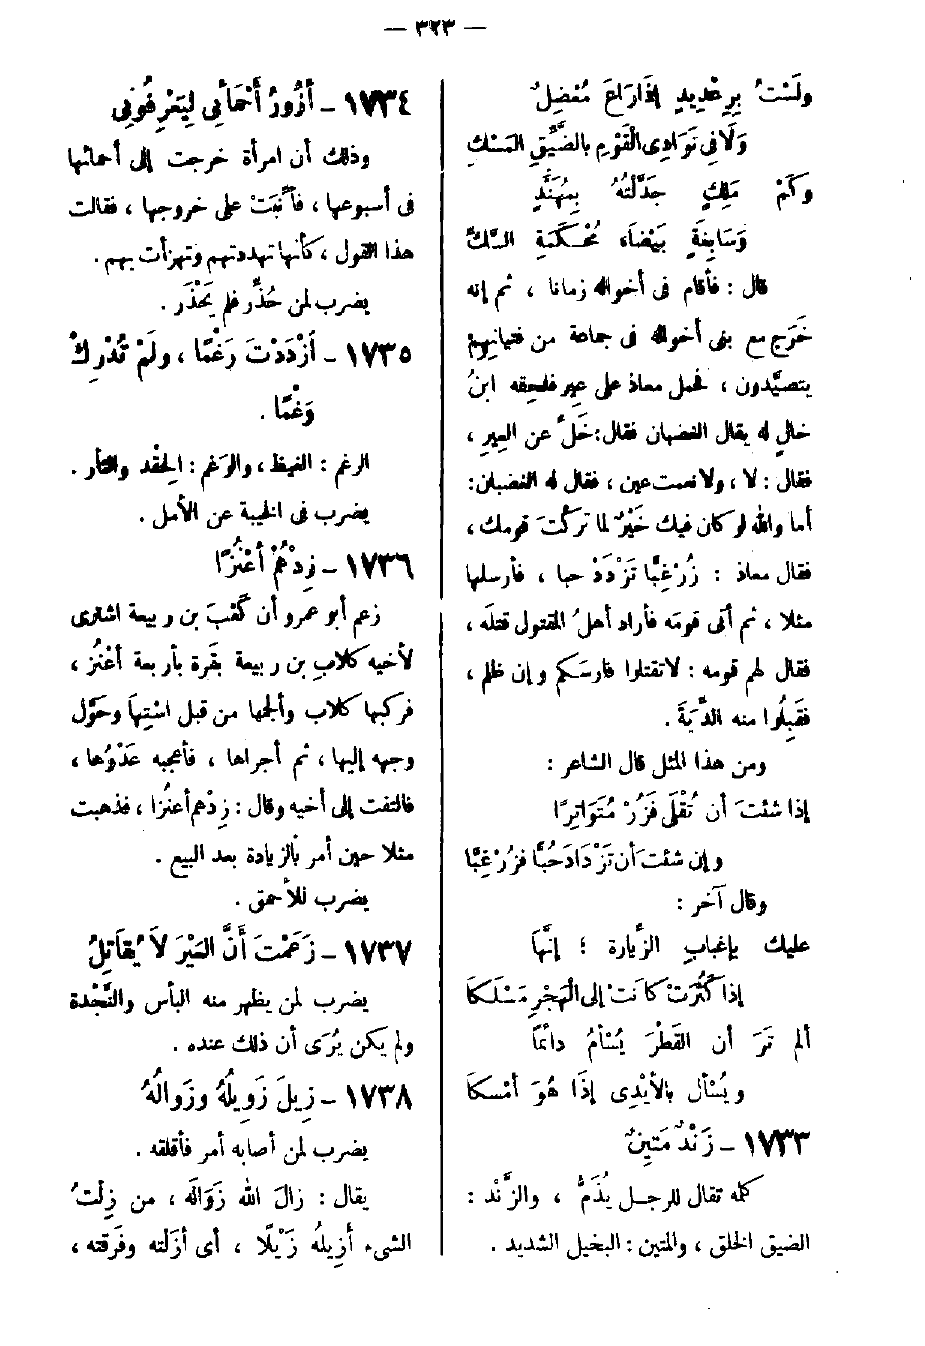 — ٣٢٣ —
ولَسْتُ بِرِعْدِيدٍ إذَا رَاعَ مُعْضِلٌ
وَلَا فِى نَوَادِى القَوْمِ بالضَّيِّقِ المَسْكِ
وكَمْ مَلِكٍ جَدَّلْتُهُ بِمُهَنَّدٍ
وَسَابِغَةٍ بَيْضَاءَ مُحْكَمَةِ السَّكِّ
قال : فأقام فى أخواله زمانا ، ثم إنه
خَرَج مع بنى أخواله فى جماعة من فتيانِهِمْ
يتصيَّدون ، فحمل معاذ على عير فلحِقه ابنُ
خالٍ له يقال الغضبان فقال : خَلِّ عن العيرِ ،
فقال : لا ، ولا نعمت عين ، فقال له الغضبان :
أما والله لو كان فيك خَيْرٌ لما تركْتَ قومك ،
فقال معاذ : زُرْ غِبًّا تَزْدَدْ حبا ، فأرسلها
مثلا ، ثم أتى قومَه فأراد أهلُ المقتول قتلَه ،
فقال لهم قومه : لا تقتلوا فارسَكم وإن ظلم ،
فقَبِلُوا منه الدِّيَةَ .
ومن هذا المثل قال الشاعر :
إذا شئتَ أن تُقْلَى فَزُرْ مُتَوَاتِرًا
وإن شئتَ أن تَزْدَادَ حُبًّا فزُرْ غِبًّا
وقال آخر :
عليك بإغبابِ الزِّيارة ؛ إنَّهَا
إذَا كَثُرَتْ كَانَتْ إلى الهَجْرِ مَسْلَكَا
ألم تَرَ أن القَطْرَ يُسْأمُ دائمًا
ويُسْأل بالأيْدِى إذَا هُوَ أمْسَكَا
١٧٣٣ - زَنْدٌ مَتِينٌ
كلمة تقال للرجل يُذَمُّ ، والزَّنْد :
الضيق الخلق ، والمتين : البخيل الشديد .
١٧٣٤ - أزُورُ أحْمَائِى لِيَعْرِفُونِى
وذلك أن امرأة خرجت إلى أحمائها
فى أسبوعها ، فأنِّبَتْ على خروجها ، فقالت
هذا القول ، كأنها تهددتهم وتهزأت بهم .
يضرب لمن حُذِّر فلم يَحْذَر .
١٧٣٥ - ازْدَدْتَ رَغْمًا ، ولَمْ تُدْرِكْ
وَغْمًا .
الرغم : الغيظ ، والوَغم : الحِقْد والثأر .
يضرب فى الخيبة عن الأمل .
١٧٣٦ - زِدْهُمْ أعْنُزًا
زعم أبو عمرو أن كَعْبَ بن ربيعة اشترى
لأخيه كلابِ بن ربيعة بقَرة بأربعة أعْنُز ،
فركبها كلاب وألجمها من قبل اسْتِهَا وحَوَّل
وجهه إليها ، ثم أجراها ، فأعجبه عَدْوُها ،
فالتفت إلى أخيه وقال : زِدْهم أعنُزا ، فذهبت
مثلا حين أمر بالزيادة بعد البيع .
يضرب للأحمق .
١٧٣٧ - زَعَمْتَ أَنَّ العَيْرَ لاَ يُقَاتِلُ
يضرب لمن يظهر منه البأس والنَّجْدة
ولم يكن يُرَى أن ذلك عنده .
١٧٣٨ - زِيلَ زَوِيلُهُ وزَوالُهُ
يضرب لمن أصابه أمر فأقلقه .
يقال : زالَ الله زَوَالَه ، من زِلْتُ
الشىء أزِيلهُ زَيْلًا ، أى أزَلْته وفرَقته ،